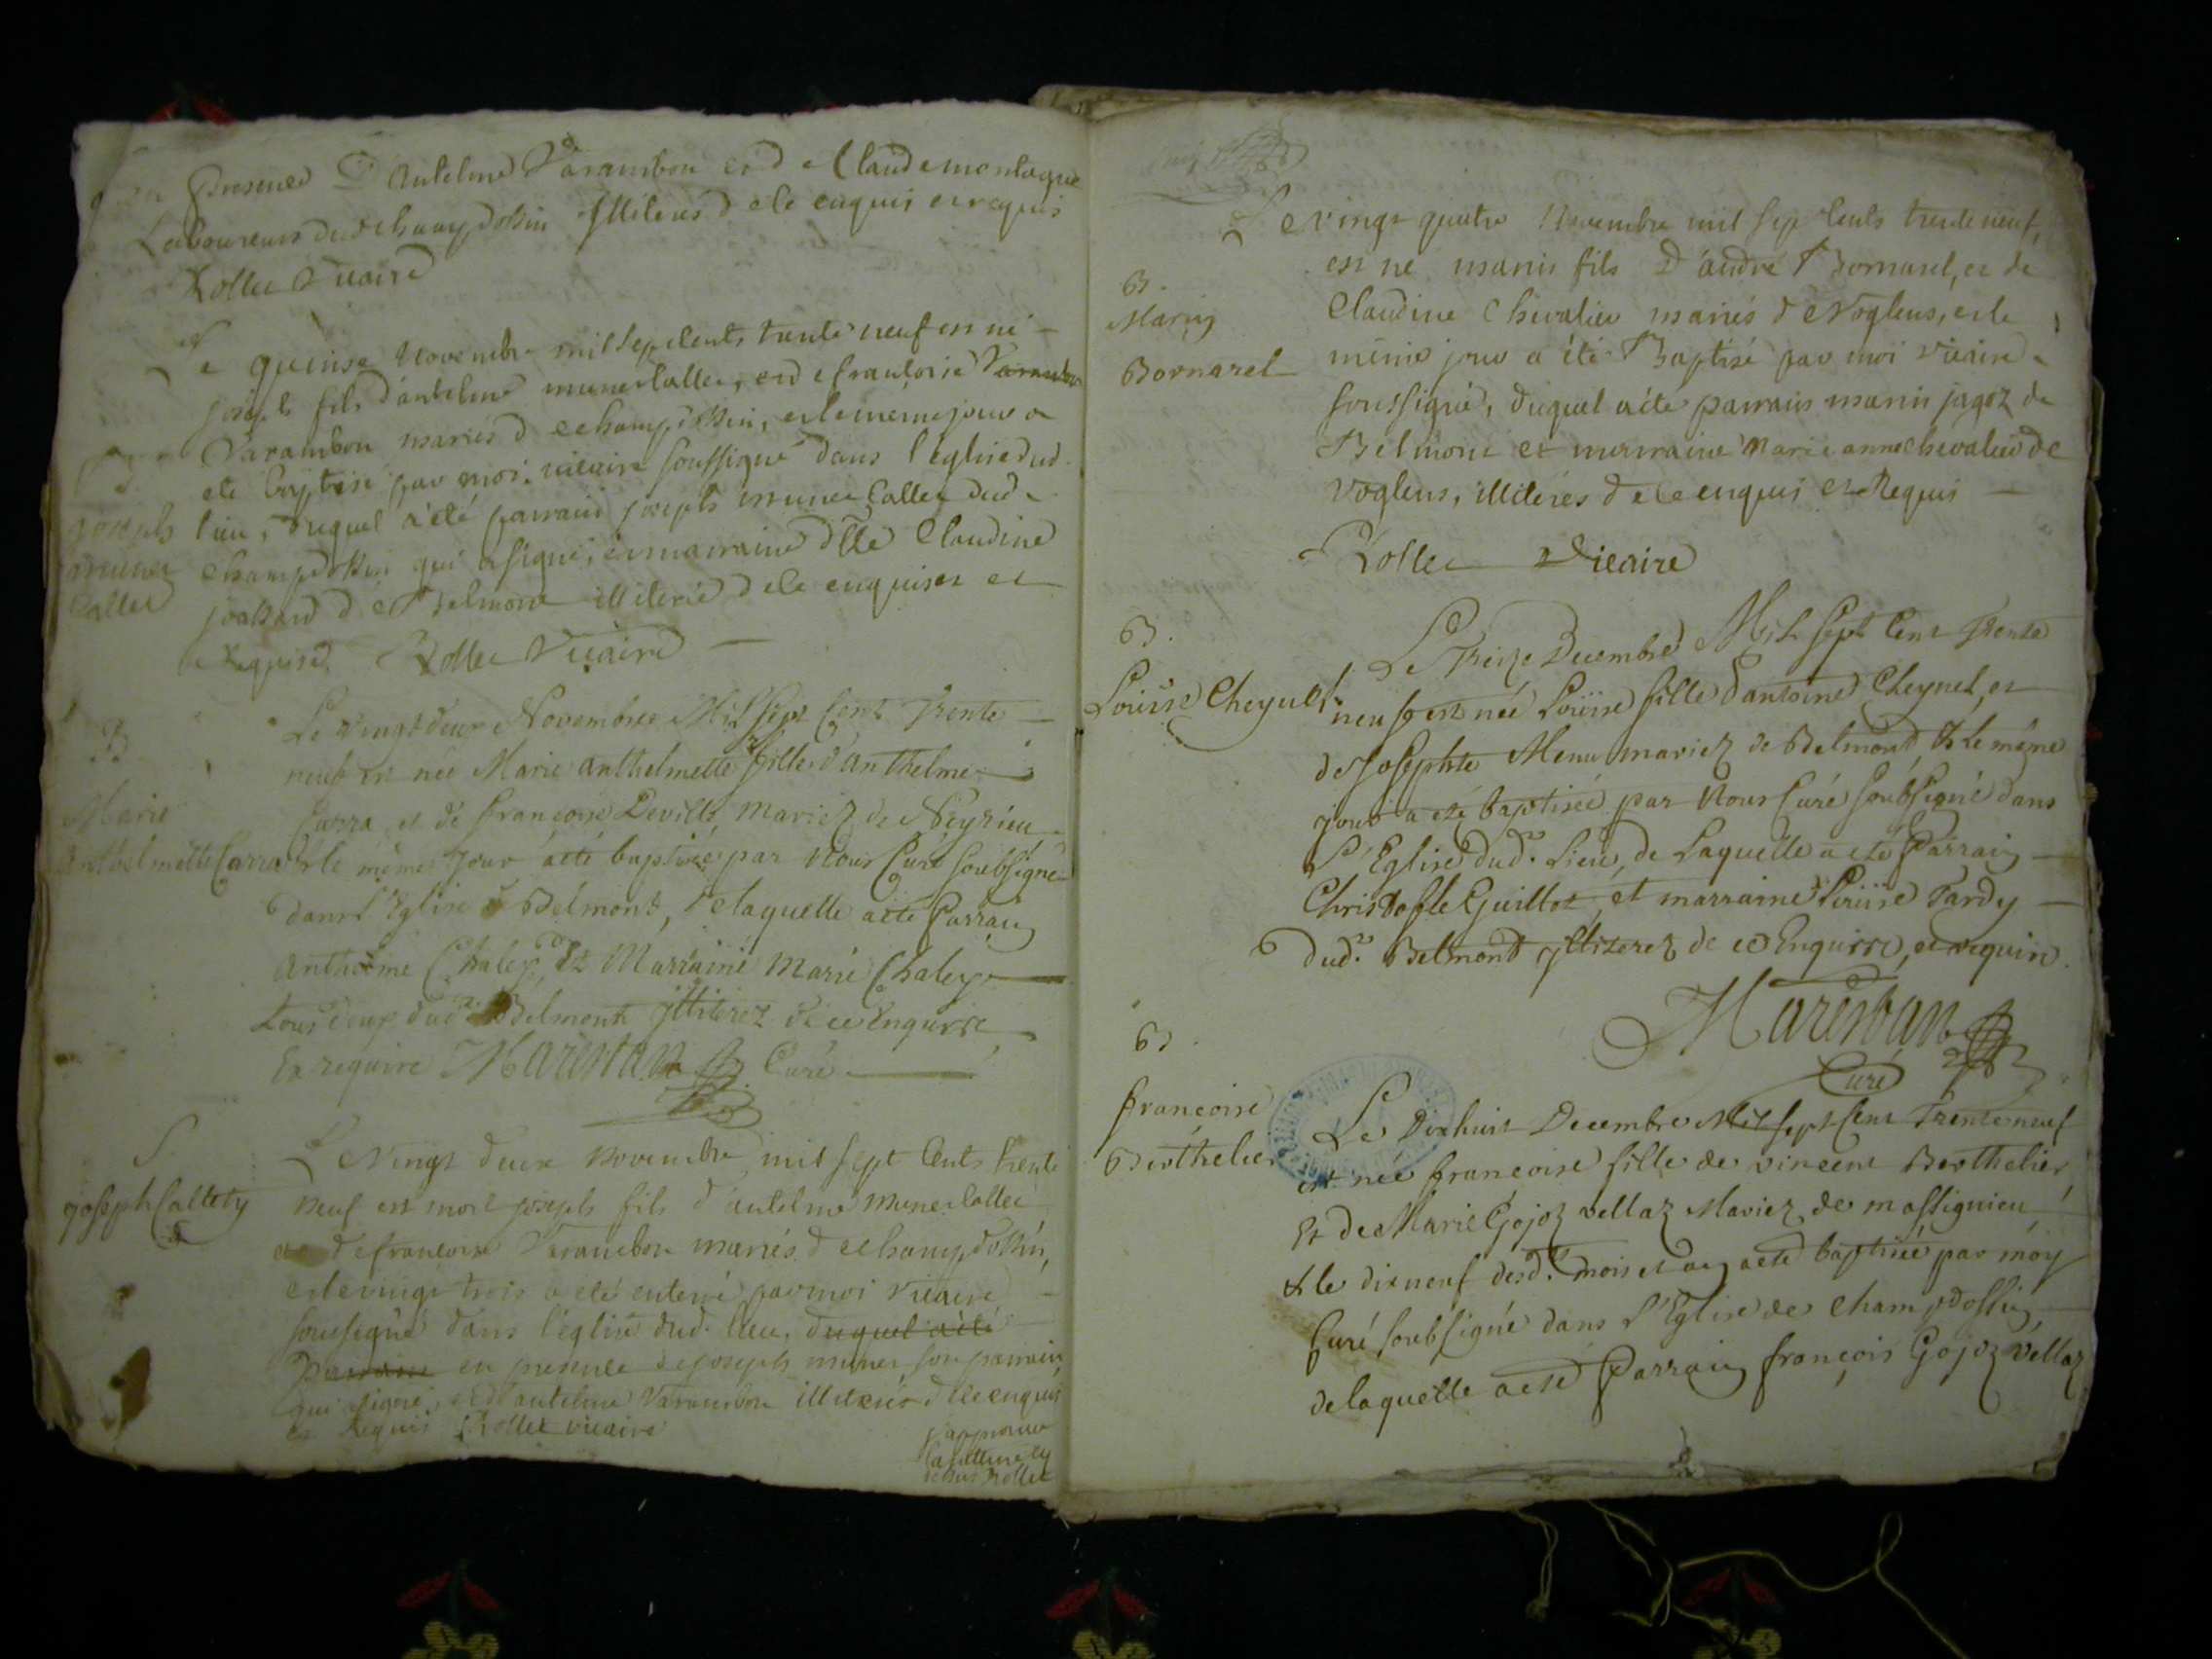 en presence D'antelme Varambon et de Claude montagne
Laboureurs dud champdossin illiteres de ce enquis et requis
Rollet Vicaire
Le quinse Novembre mil sept cents trente neuf est né
joseph fils d'antelme munercallet, et de francoise Varambon
Varambon mariés de champdossin, et le meme jour a
été baptisé par moi vicaire soussigné dans l'église dud.
joseph
muner
Callet
lieu, duquel a été parrain joseph muner Callet dud.
champdossin qui a signé, et marraine dlle Claudine
de Belmont illiterée de ce enquise et
Requise. Rollet Vicaire
B
Marie
Anthelmette Carra
Le vingt deux Novembre Mil sept Cent Trente
neuf est née Marie anthelmette fille d'anthelme
Carra, et de françoise Deville Mariez de Neyrieu
& le même Jour a été baptisée par Nous Curé soubsigné
dans l'Eglise de Belmond, de laquelle a été Parrain
Anthelme Chaley, Et Marraine Marie Chaley
tous deux dud. Belmont illiterez de ce Enquire
Et require Marestan Curé
S
joseph Calletty
Le Vingt deux Novembre mil sept Cents trente
neuf est mort joseph fils d'antelme munercallet
et de francoise Varambon mariés de champdossin,
et le vingt trois a été enterré par moi vicaire
soussigné dans l'église dud. lieu, duquel a été
parrain en presence de joseph muner son parrain
qui a signé, et d'antelme Varambon illiterés de ce enquis
et Requis Rollet vicaire
j'approuve
la rature cy
dessus Rollet
B.
Marin
Bornarel
Le vingt quatre Novembre mil sept Cents trente neuf,
est né marin fils D'andré Bornarel, et de
Claudine Chevalier mariés de Voglens, et le
même jour a été Baptisé par moi vicaire
soussigné, duquel a été parrain marin jagoz de
Belmont et marraine Marie anne chevalier de
Voglens, illiterés de ce enquis et Requis
Rollet Vicaire
B.
Louise Cheynet
Le Treize Decembre Mil sept Cent Trente
neuf est née Louise fille d'antoine Cheynet, et
de Josephte Menu mariez de Belmond, & le même
jour a été baptisée par Nous Curé soubsigné dans
L'Eglise dud. Lieu, de Laquelle a été Parrain
Christofle Guillot, et marraine Louise Tardy
dud. Belmond illiterez de ce Enquire, et require.
Marestan
Curé
B.
françoise
Berthelier
Le Dixhuit Decembre Mil sept Cent Trente neuf
est née françoise fille de vincent Berthelier,
Et de Marie Gojoz vellaz Mariez de massignieu
& le dixneuf desd. mois et an a été baptisée par moy
Curé soubsigné dans L'Eglise de Champdossin
de laquelle a été Parrain françois Gojoz vellaz